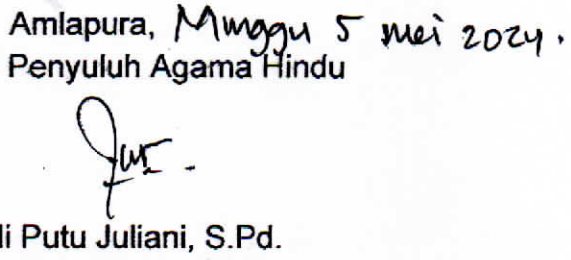 Amlapura, Minggu 5 mei 2024.
Penyuluh Agama Hindu
li Putu Juliani, S.Pd.